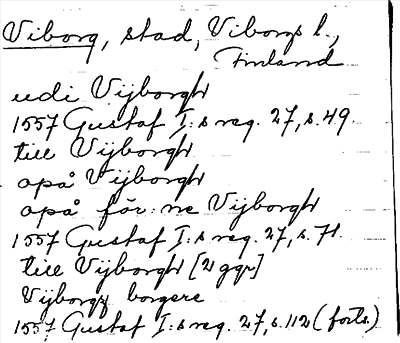 Viborg, stad, Viborgs l.,
Finland
udi Vijborgh
1557 Gustaf I:s reg. 27, s. 49.
till Vijborgh
opå Vijborgh
opå för:ne Vijborgh
1557 Gustaf I:s reg. 27, s. 71.
till Vijborgh [2 ggr]
Vijborgz borgere
1557 Gustaf I:s reg. 27, s. 112 (forts.)